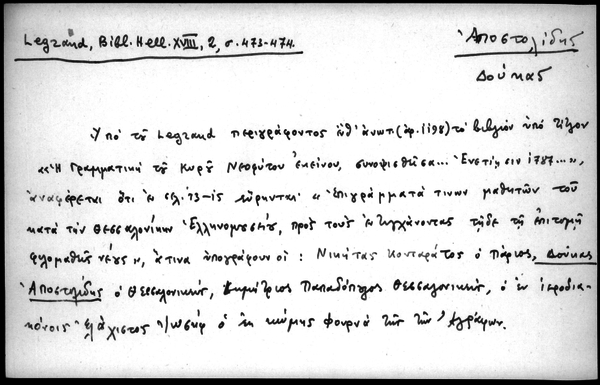 Legrand, Bibl. Hell. XVIII, 2, σ. 473-474.
Ἀποστολίδης
Δούκας
Ὑπὸ τοῦ Legrand περιγράφοντος ἔνθ' ἀνωτ. (ἀρ. 1198) τὸ βιβλίον ὑπὸ τίτλον
«Ἡ Γραμματικὴ τοῦ Κυροῦ Νεοφύτου ἐκείνου, συνοψισθεῖσα... Ἐνετίῃσιν 1787...»,
ἀναφέρεται ὅτι ἐν σελ. 13-15 εὕρηνται «Ἐπιγράμματά τινων μαθητῶν τοῦ
κατὰ τὴν Θεσσαλονίκην Ἑλληνομουσείου, πρὸς τοὺς ἐντυγχάνοντας τῇδε τῇ ἐπιτομῇ
φιλομαθεῖς νέους», ἅτινα ὑπογράφουν οἱ: Νικήτας Κονταράτος ὁ Πάριος, Δούκας
Ἀποστολίδης ὁ Θεσσαλονικεύς, Δημήτριος Παπαδόπουλος Θεσσαλονικεύς, ὁ ἐν ἱεροδια-
κόνοις ἐλάχιστος Ἰωσὴφ ὁ ἐκ κώμης Φουρνᾶ τῆς τῶν Ἀγράφων.